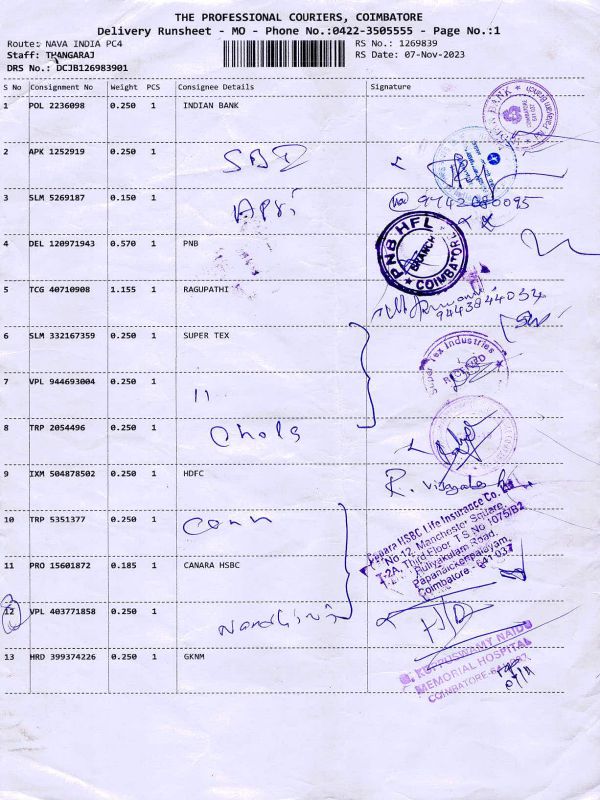 THE PROFESSIONAL COURIERS, COIMBATORE
Delivery Runsheet - MO - Phone No.:0422-3505555 - Page No.:1
Route: NAVA INDIA PC4
RS No.: 1269839
Staff: THANGARAJ
RS Date: 07-Nov-2023
DRS No.: DCJB126983901
S No Consignment No Weight PCS Consignee Details Signature
1 POL 2236098 0.250 1 INDIAN BANK
2 APK 1252919 0.250 1 SBI
3 SLM 5269187 0.150 1
4 DEL 120971943 0.570 1 PNB
PNB HFL
BRANCH
COIMBATORE
5 TCG 40710908 1.155 1 RAGUPATHI
9443844034
6 SLM 332167359 0.250 1 SUPER TEX
Super Tex Industries
RECEIVED
7 VPL 944693004 0.250 1 11
8 TRP 2054496 0.250 1 Chola
9 IXM 504878502 0.250 1 HDFC
10 TRP 5351377 0.250 1
Canara HSBC Life Insurance Co.
No 12, Manchester Square,
T-2A, Third Floor, T.S No 1075/B2
Puliyakulam Road,
Papanaickenpalayam,
Coimbatore - 641 037
11 PRO 15601872 0.185 1 CANARA HSBC
12 VPL 403771858 0.250 1
13 HRD 399374226 0.250 1 GKNM
G. KUPPUSWAMY NAIDU
MEMORIAL HOSPITAL